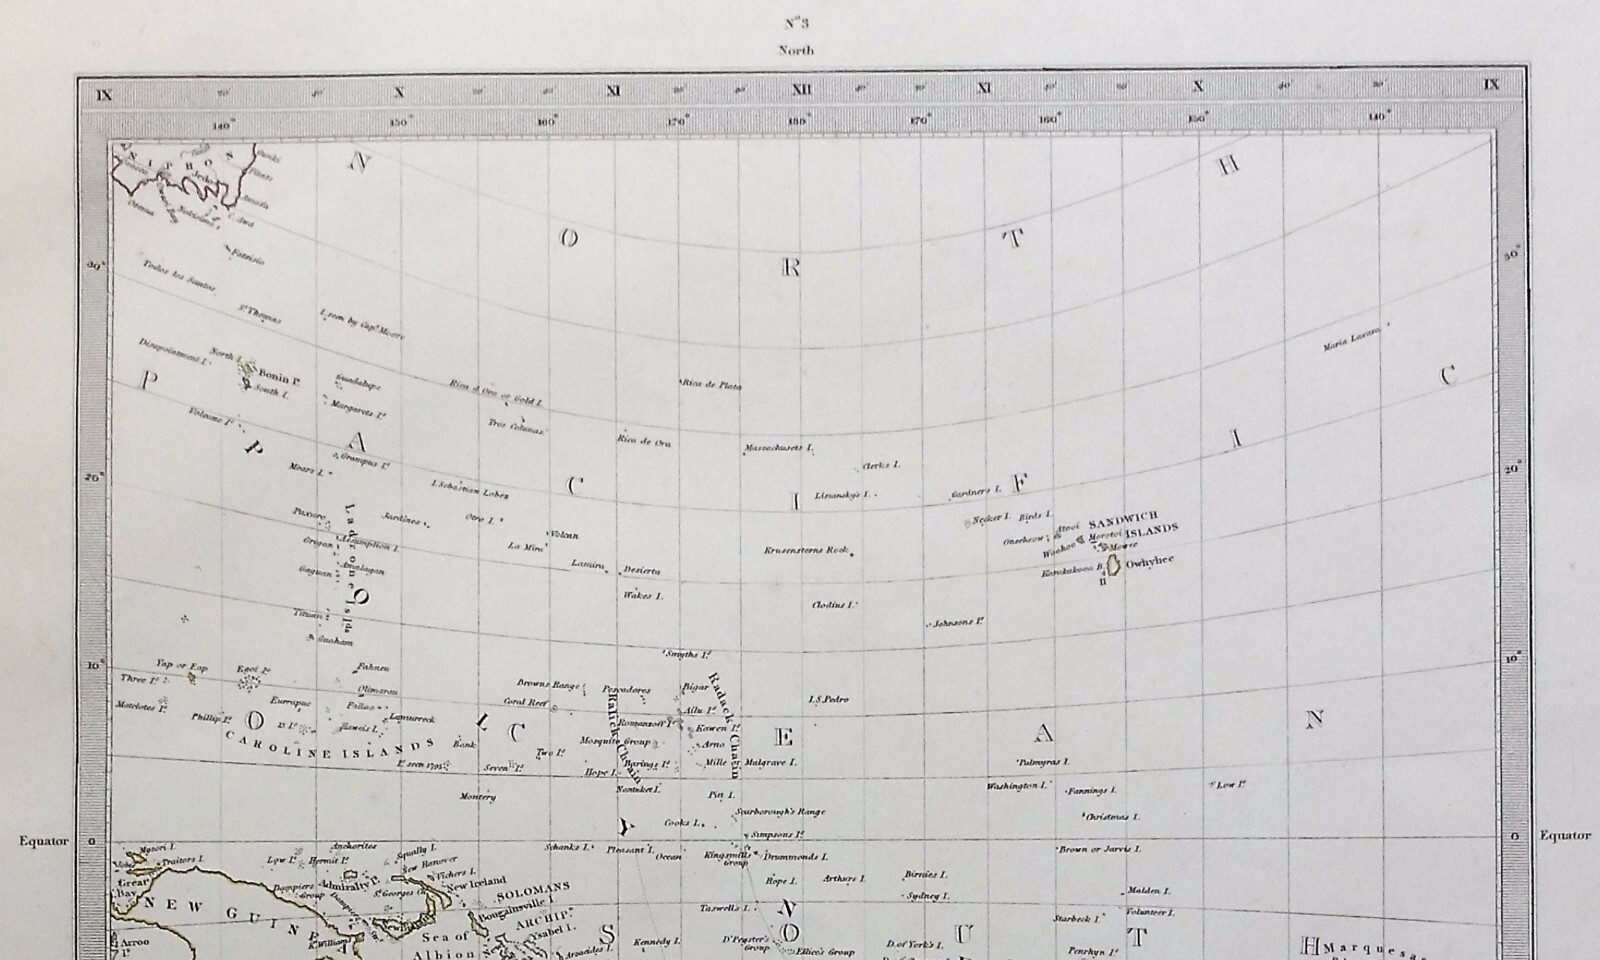 Nº3
North
IX 20' 40' X 20' 40' XI 20' 40' XII 40' 20' XI 40' 20' X 40' 20' IX
140° 150° 160° 170° 180° 170° 160° 150° 140°
NIPHON
Jedo
C. Awa
Fatzisio
NORTH
30° 30°
Todos los Santos
St. Thomas
I. seen by Capt. Moore
Maria Laxara
Disapointment I.
North I.
Bonin Is.
South I.
Guadalupe
Margarets Is.
Rica d Oro or Gold I.
Rica de Plata
PACIFIC
Volcano Is.
Tres Colunas
Rica de Oro
Massachusets I.
Grampus Is.
Mears I.
Clerks I.
20° 20°
I. Sebastian Lobos
Lisiansky's I.
Gardners I.
Ladrone Isds.
Paxaro
Jardines
Otro I.
Necker I.
Birds I.
SANDWICH
ISLANDS
Atooi
Oneeheow
Woahoo
Morotoi
Mowee
Volcan
La Mira
Grigan
Assumption I.
Krusensterns Rock
Karakakooa B.
Owhyhee
Lamira
Desierta
Amalagan
Guguan
Wakes I.
Clodius I.
Tinian
Johnsons Is.
Guaham
Smyths Is.
10° 10°
Yap or Eap
Egoi Is.
Fahneu
Three Is.
Olimarau
Browns Range
Pescadores
Bigar
Radack Chain
I. S. Pedro
Matelotes Is.
Eurrupuc
Coral Reef
Ralick Chain
Allu Is.
Phillip Is.
13 Is.
Lamurreck
Romanzoff Is.
Kawen Is.
OCEAN
CAROLINE ISLANDS
Bank
Mosquito Group
Arno
Two Is.
Is. seen 1795
Seven Is.
Hope I.
Barings Is.
Mille
Mulgrave I.
Palmyras I.
Nantuket I.
Washington I.
Fannings I.
Low Is.
Montery
Pitt I.
Scarborough's Range
Christmas I.
POLY
Cooks I.
Simpsons Is.
Equator 0 0 Equator
Mysori I.
Traitors I.
Low Is.
Anchorites
Hermit Is.
Squally I.
Schanks I.
Pleasant I.
Ocean
Kingsmills Group
Drummonds I.
Brown or Jarvis I.
Great Bay
New Hanover
Vichers I.
Dampiers Group
Admiralty Is.
St. Georges
New Ireland
Hope I.
Arthurs I.
Birnies I.
NEW GUINEA
SOLOMANS
ARCHIP.
Bougainville I.
Sydney I.
Malden I.
Taswells I.
Starbeck I.
Volunteer I.
Ysabel I.
Arroo Is.
K. William's
Sea of
Albion
Arsacides I.
S
Kennedy I.
D'Peyster's Group
NO
Ellice's Group
D. of York's I.
UTH
Penrhyn Is.
Marquesas